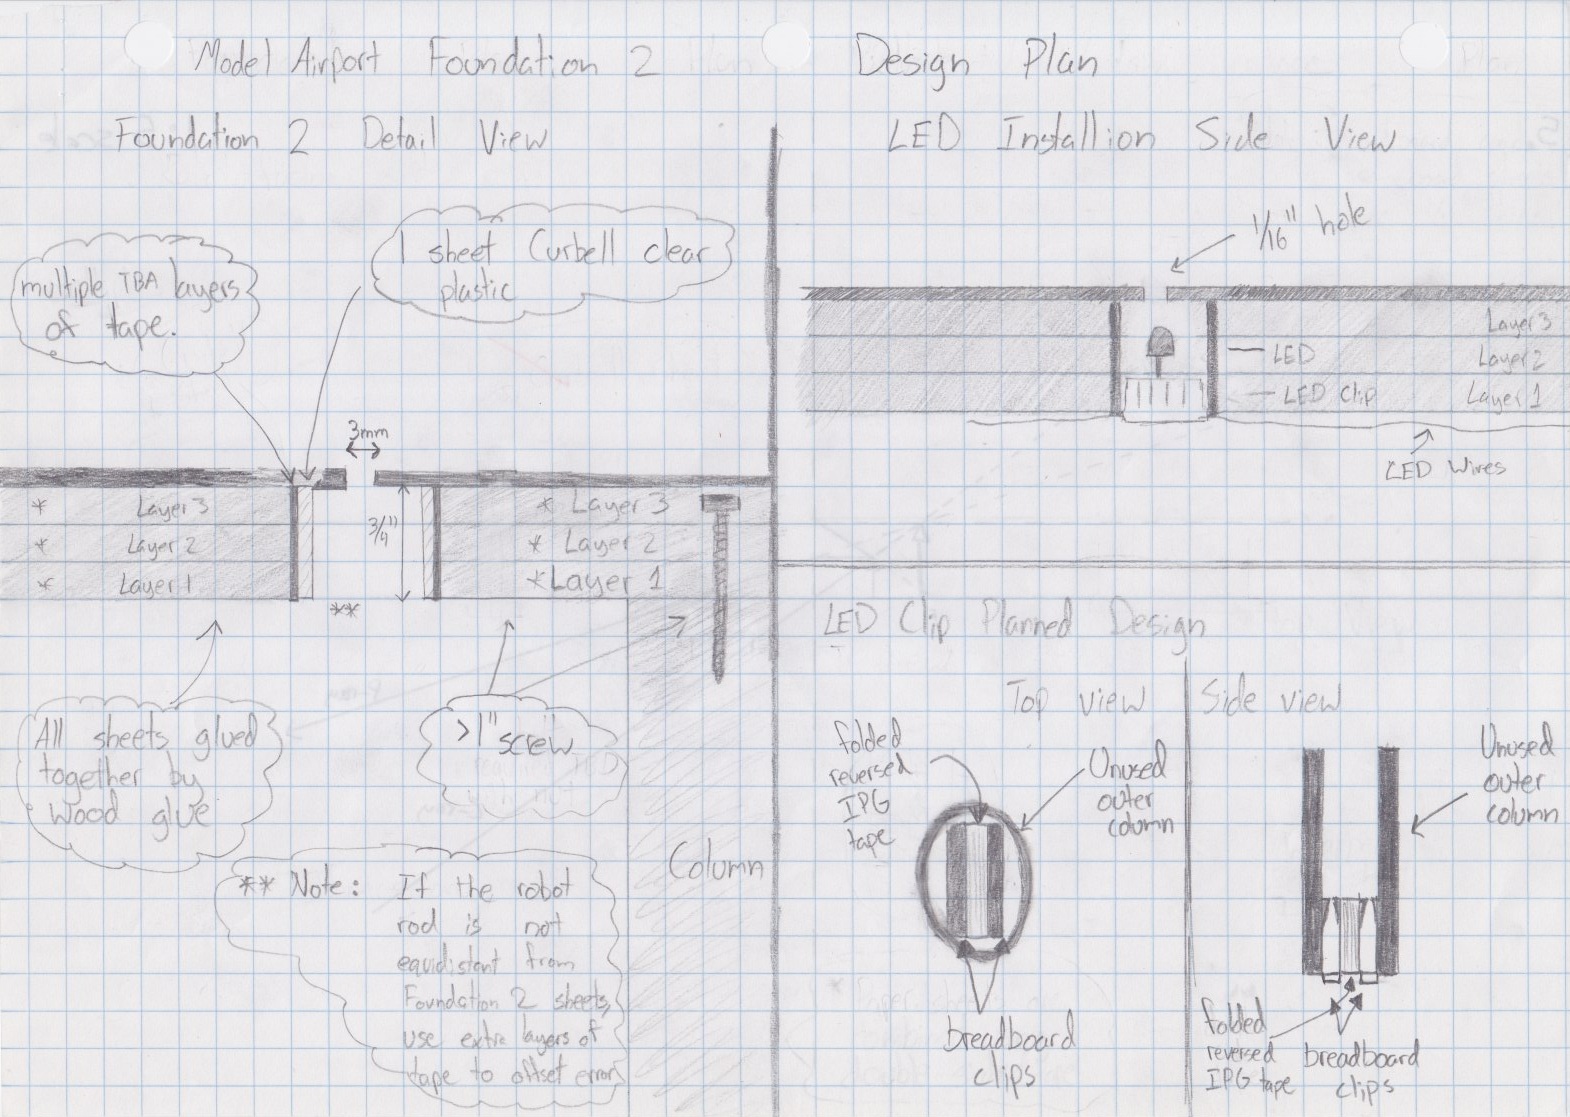 Model Airport Foundation 2 Design Plan
Foundation 2 Detail View
multiple TBA layers
of tape.
1 sheet Curbell clear
plastic
3mm
* Layer 3
* Layer 2
* Layer 1
3/4"
* Layer 3
* Layer 2
* Layer 1
**
All sheets glued
together by
Wood glue
>1" screw
** Note: If the robot
rod is not
equidistant from
Foundation 2 sheets,
use extra layers of
tape to offset error
Column
LED Installion Side View
1/16" hole
Layer 3
LED
Layer 2
LED Clip
Layer 1
LED Wires
LED Clip Planned Design
Top view
folded
reversed
IPG
tape
Unused
outer
column
breadboard
clips
Side view
Unused
outer
column
folded
reversed
IPG tape
breadboard
clips